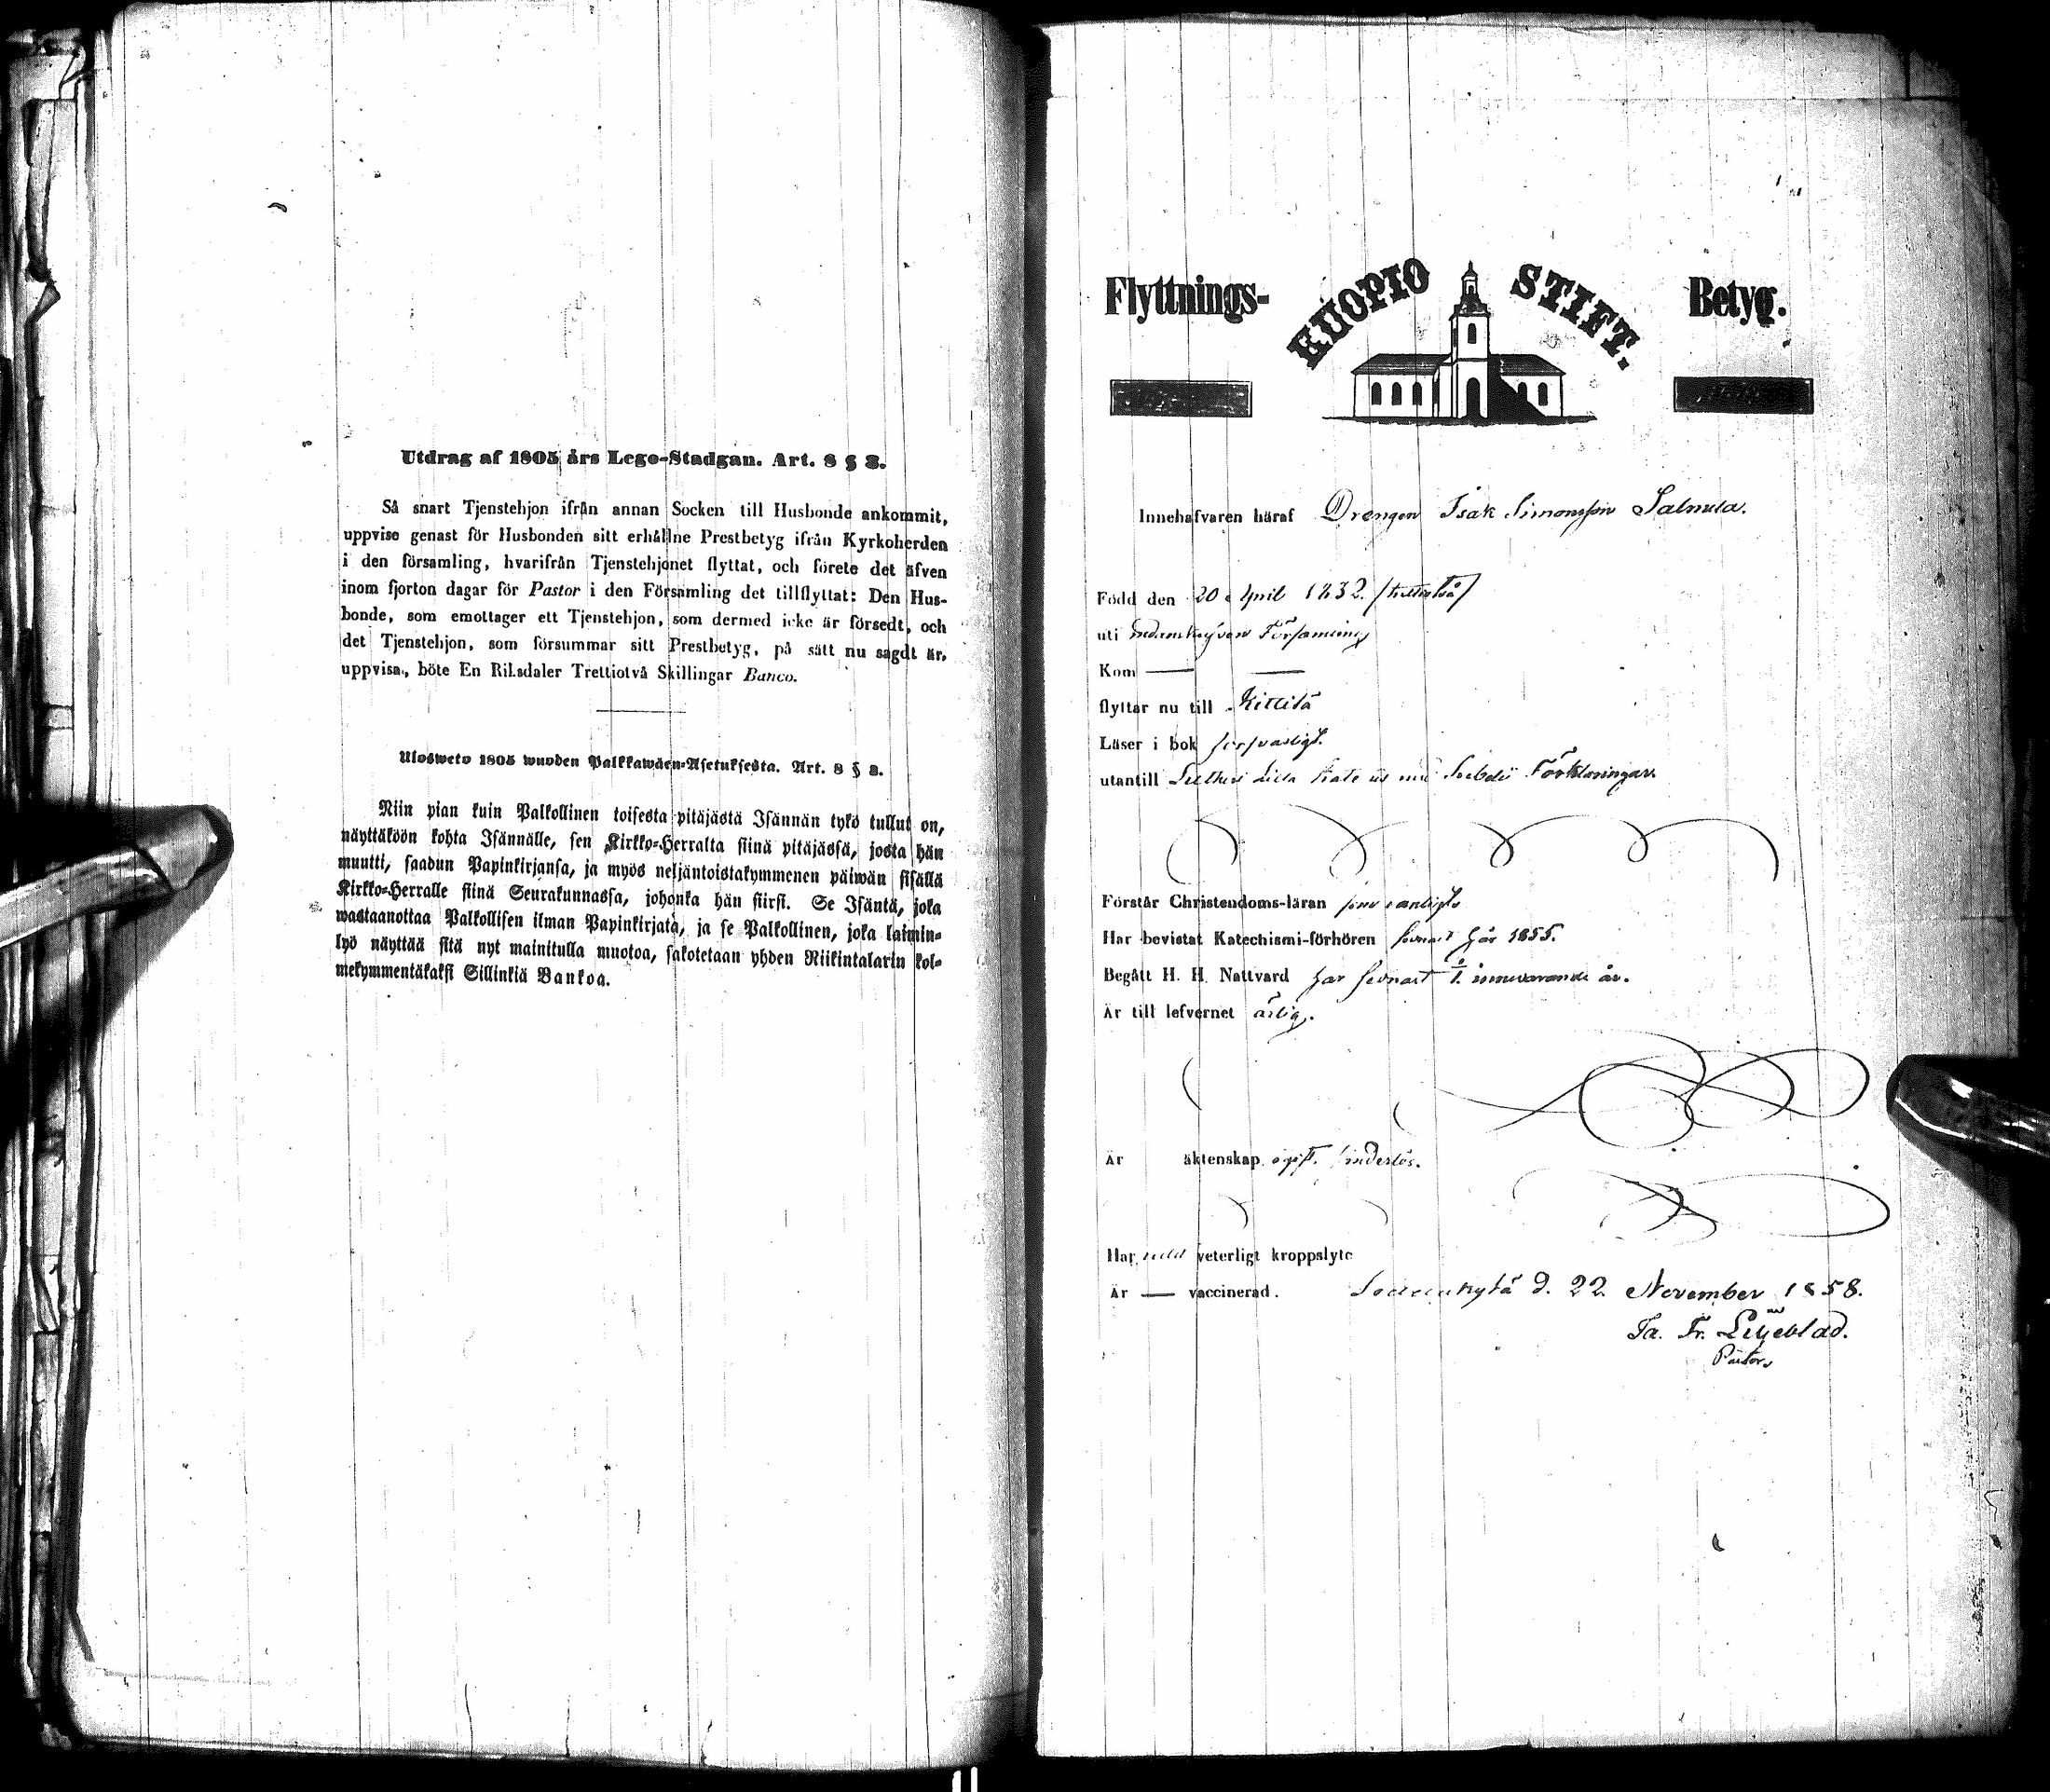 Utdrag af 1805 års Lego-Stadgan. Art. 8 § 8.
Så snart Tjenstehjon ifrån annan Socken till Husbonde ankommit,
uppvise genast för Husbonden sitt erhållne Prestbetyg ifrån Kyrkoherden
i den församling, hvarifrån Tjenstehjonet flyttat, och förete det äfven
inom fjorton dagar för Pastor i den Församling det tillflyttat: Den Hus-
bonde, som emottager ett Tjenstehjon, som dermed icke är försedt, och
det Tjenstehjon, som försummar sitt Prestbetyg, på sätt nu sagdt är,
uppvisa, böte En Riksdaler Trettiotvå Skillingar Banco.
Ulosweto 1805 wuoden Palkkawäen-Asetuksesta. Art. 8 § 8.
Niin pian kuin Palkollinen toisesta pitäjästä Isännän tykö tullut on,
näyttäköön kohta Isännälle, sen Kirkko-Herralta siinä pitäjässä, josta hän
muutti, saadun Papinkirjansa, ja myös neljäntoistakymmenen päiwän sisällä
Kirkko-Herralle siinä Seurakunnassa, johonka hän siirsi. Se Isäntä, joka
wastaanottaa Palkollisen ilman Papinkirjata, ja se Palkollinen, joka laimin-
lyö näyttää sitä nyt mainitulla muotoa, sakotetaan yhden Riikintalarin kol-
mekymmentäkaksi Sillinkiä Bankoa.
Flyttnings- KUOPIO STIFT. Betyg.
Innehafvaren häraf Drengen Isak Simonsson
Född den 20 April 1832.
uti Församling
Kom
flyttar nu till Kittilä
Läser i bok försvarligt.
utantill Lutheri Lilla Förklaringar.
Förstår Christendoms-läran försvarligt
Har bevistat Katechismi-förhören senast 1855.
Begått H. H. Nattvard senast innevarande år.
Är till lefvernet ärlig.
Är äktenskap ogift.
Har veterligt kroppslyte
Är — vaccinerad. Sodankylä d. 22 November 1858.
Liljeblad.
Pastor